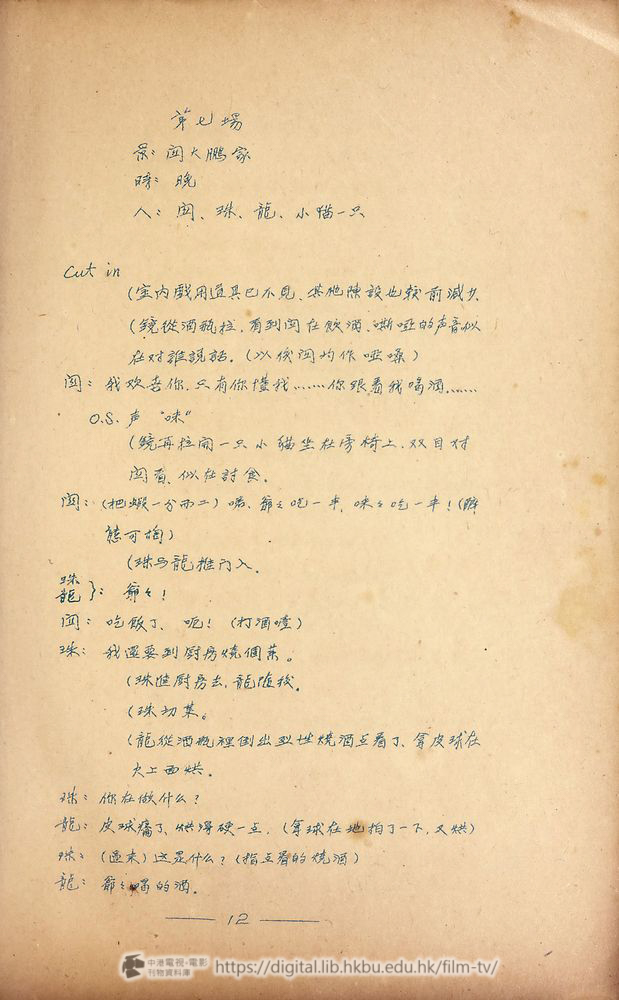 第七場
景：闵大鵬家
時：晚
人：闵、珠、龍、小猫一只
Cut in
（室内戲用道具已不見、其他陳設也較前減少
（鏡從酒瓶拉，看到闵在飲酒、嘶啞的声音似
在对誰說話。（以後闵均作啞嗓）
闵：我欢喜你，只有你懂我……你跟着我喝酒……
O.S. 声 "咪"
（鏡再拉開一只小貓坐在旁椅上，双目对
闵看、似在討食。
闵：（把蝦一分而二）喏、爺々吃一半，咪々吃一半！（醉
態可掬）
（珠与龍推门入。
珠
龍 }：爺々！
闵：吃飯了、呃！（打酒嗝）
珠：我還要到厨房燒個菜。
（珠進厨房去，龍隨後。
（珠切菜。
（龍從酒瓶裡倒出燒酒点着了、拿皮球在
火上面烘。
珠：你在做什么？
龍：皮球癟了、烘得硬一点，（拿球在地拍了一下，又烘）
珠：（過來）这是什么？（指点着的燒酒）
龍：爺々喝的酒。
12
中港電視·電影
刊物資料庫
https://digital.lib.hkbu.edu.hk/film-tv/